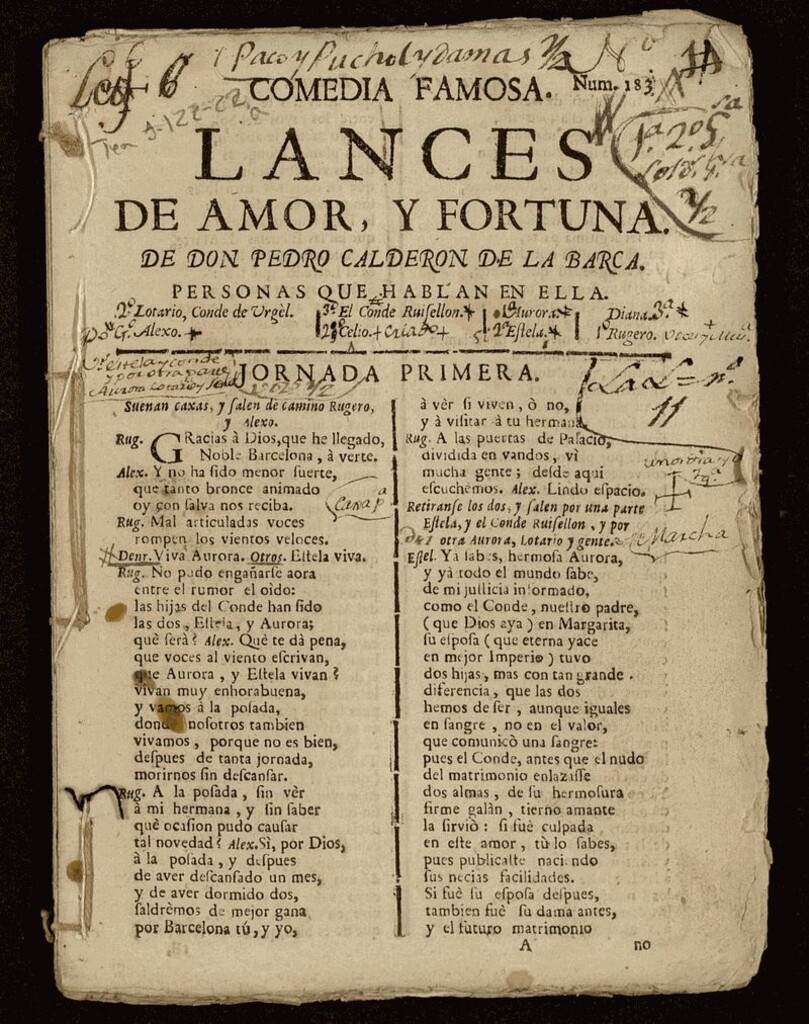 Paco y Puchol y damas
Leg 6
COMEDIA FAMOSA. Num. 183
Tea 1-122-22
LANCES
DE AMOR, Y FORTUNA.
DE DON PEDRO CALDERON DE LA BARCA.
PERSONAS QUE HABLAN EN ELLA.
Lotario, Conde de Urgèl. El Conde Ruiſellon. Aurora. Diana.
Alexo. Celio. Criado Eſtela. Rugero.
JORNADA PRIMERA.
11
Suenan caxas, y ſalen de camino Rugero,
y Alexo.
Rug. GRacias à Dios, que he llegado,
Noble Barcelona, à verte.
Alex. Y no ha ſido menor ſuerte,
que tanto bronce animado
oy con ſalva nos reciba.
Rug. Mal articuladas voces
rompen los vientos veloces.
Dentr. Viva Aurora. Otros. Eſtela viva.
Rug. No pudo engañarſe aora
entre el rumor el oìdo:
las hijas del Conde han ſido
las dos, Eſtela, y Aurora;
què ſerà? Alex. Què te dà pena,
que voces al viento eſcrivan,
que Aurora, y Eſtela vivan?
vivan muy enhorabuena,
y vamos à la poſada,
donde noſotros tambien
vivamos, porque no es bien,
deſpues de tanta jornada,
morirnos ſin deſcanſar.
Rug. A la poſada, ſin vèr
à mi hermana, y ſin ſaber
què ocaſion pudo cauſar
tal novedad? Alex. Sì, por Dios,
à la poſada, y deſpues
de aver deſcanſado un mes,
y de aver dormido dos,
ſaldrèmos de mejor gana
por Barcelona tú, y yo,
à vèr ſi viven, ò no,
y à viſitar à tu hermana.
Rug. A las puertas de Palacio,
dividida en vandos, vì
mucha gente; deſde aqui
eſcuchemos. Alex. Lindo eſpacio.
Retiranſe los dos, y ſalen por una parte
Eſtela, y el Conde Ruiſellon, y por
otra Aurora, Lotario y gente.
Marcha
Eſtel. Yà ſabes, hermoſa Aurora,
y yà todo el mundo ſabe,
de mi juſticia informado,
como el Conde, nueſtro padre,
(que Dios aya) en Margarita,
ſu eſpoſa (que eterna yace
en mejor Imperio) tuvo
dos hijas, mas con tan grande
diferencia, que las dos
hemos de ſer, aunque iguales
en ſangre, no en el valor,
que comunicò una ſangre:
pues el Conde, antes que el nudo
del matrimonio enlazaſſe
dos almas, de ſu hermoſura
firme galàn, tierno amante
la ſirviò: ſi fuè culpada
en eſte amor, tù lo ſabes,
pues publicaſte naciendo
ſus necias facilidades.
Si fuè ſu eſpoſa deſpues,
tambien fuè ſu dama antes,
y el futuro matrimonio
A no